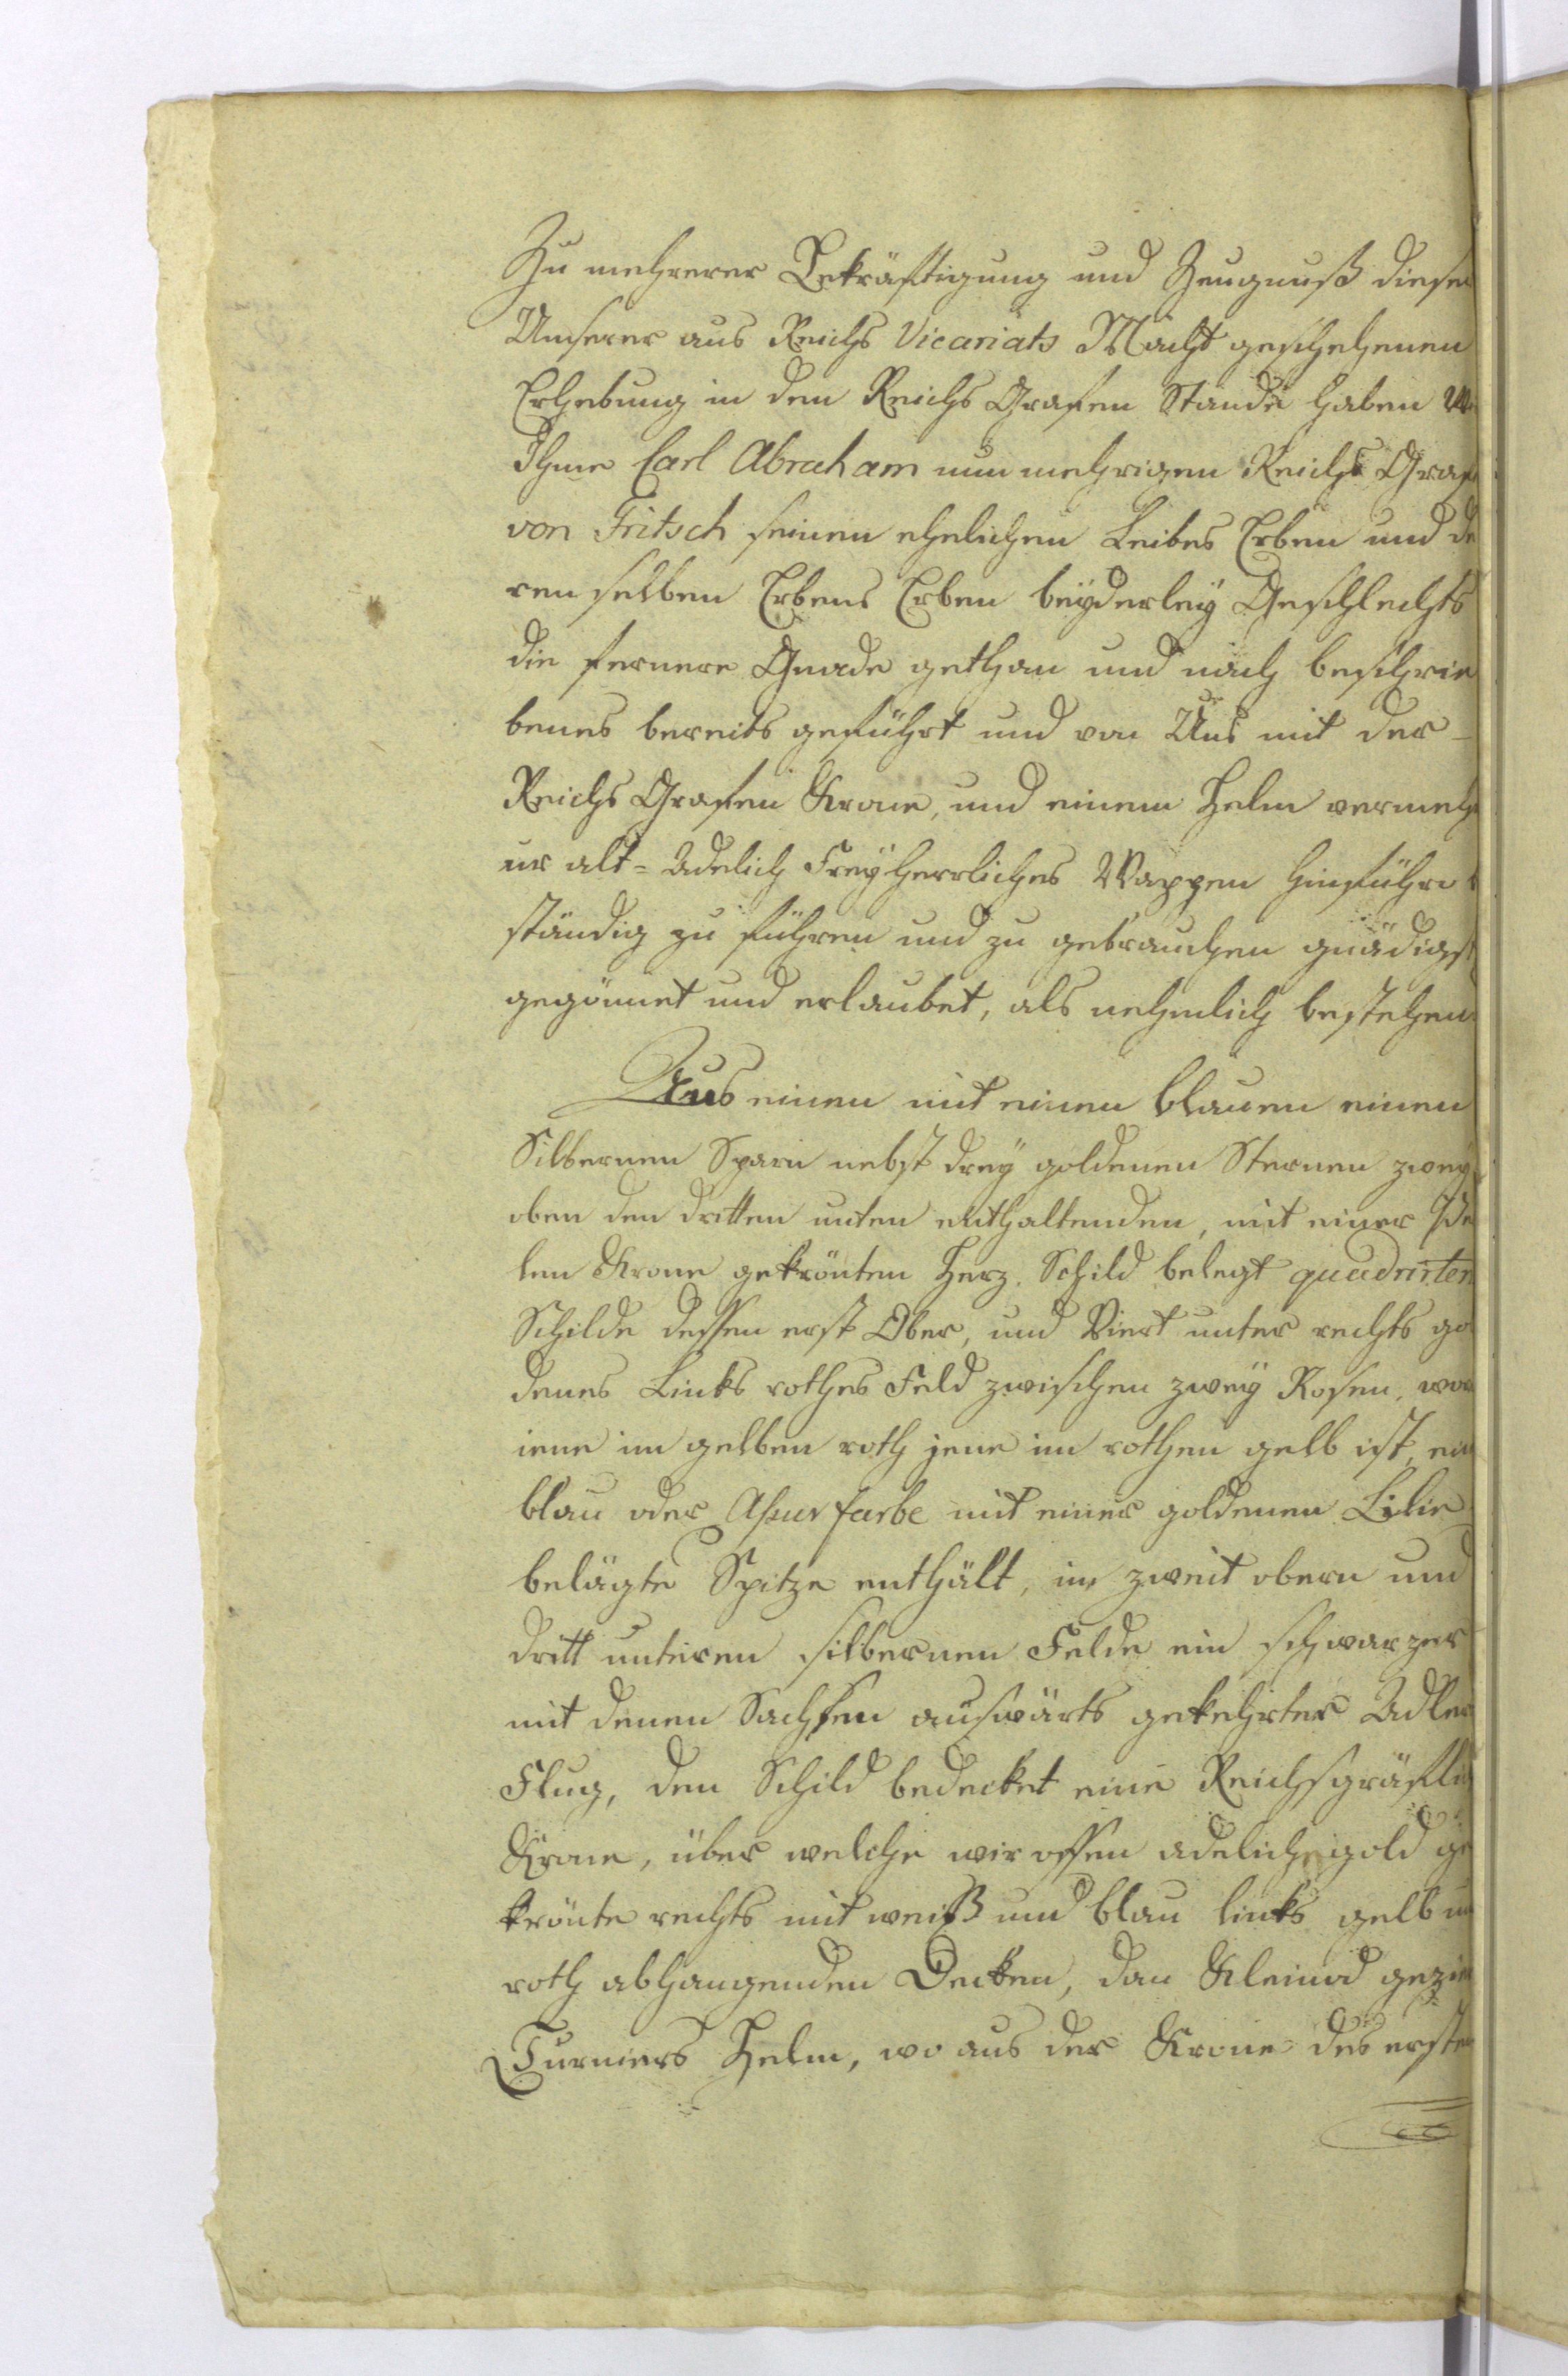 Zu mehrerer Bekräftigung und Zeugnuß dieser
Unserer aus Reichs Vicariats Macht geschehenen
Erhebung in den Reichs Grafen Stande haben W
Ihme Carl Abraham nun mehrigen Reichs Graf
von Fritsch seinen ehelichen Leibes Erben und de
ren selben Erbens Erben beyderley Geschlechts
die fernere Gnade gethan und nach beschrie
benes bereits geführt und von Uns mit der -
Reichs Grafen Krone, und einem Helm vermeh
ur alt = Adelich Freyherrliches Wappen hinführ
ständig zu führen und zu gebrauchen gnädigst
gegönnet und erlaubet, als nehmlich bestehen
Aus einen mit einen blauen einen
Silbernen Sparn nebst drey goldenen Sternen zwey
oben den dritten unten enthaltenden, mit einer Ade
len Krone gekrönten Herz. Schild belegt quadrirten
Schilde dessen erst Ober, und Viert unter rechts go
denes Links rothes Feld zwischen zwey Rosen, wov
iene im gelben roth jene im rothen gelb ist, ein
blau oder Asur farbe mit einer goldenen Lilie
belägte Spitze enthält, im zweit obern und
dritt unteren silbernen Felde ein schwarzer
mit denen Sachsen auswärts gekehrter Adler
Flug, den Schild bedecket eine Reichsgräflich
Krone, über welche vier offen adeliche gold ge
krönte rechts mit weiß und blau links gelb un
roth abhangenden Decken, dan Kleinod gezie
Turniers Helm, wo aus der Krone des ersten